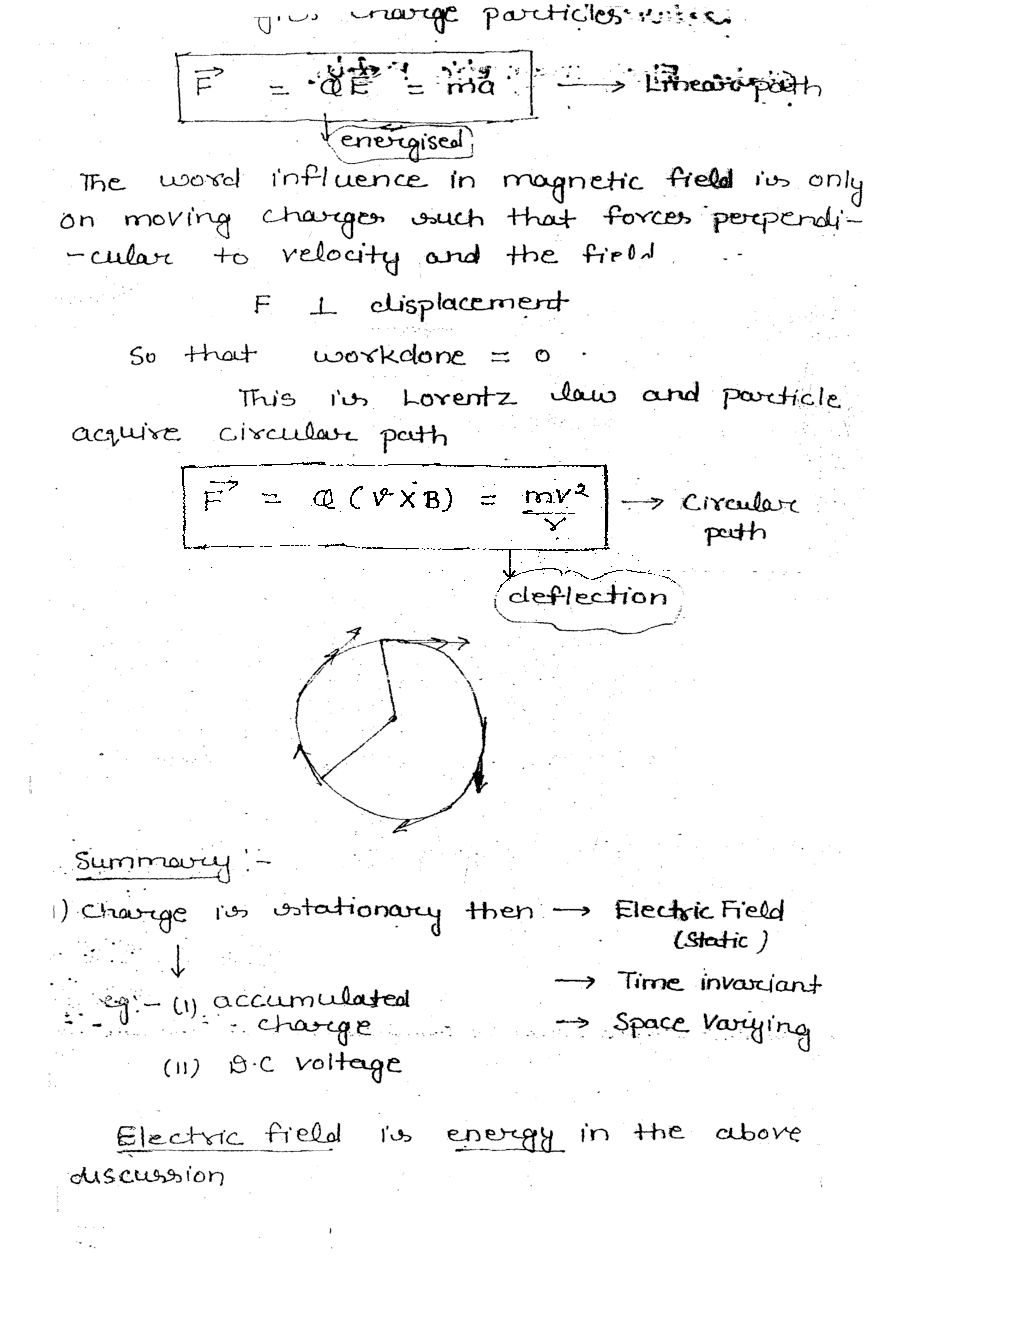 charge particles
F⃗ = QE⃗ = ma⃗ → Linear path
energised
The word influence in magnetic field is only
on moving charges such that forces perpendi-
-cular to velocity and the field
F ⊥ displacement
So that workdone = 0.
This is Lorentz law and particle
acquire circular path
F⃗ = Q (V X B) = mv²/r → Circular
path
deflection
Summary :-
1) Charge is stationary then → Electric Field
(Static)
→ Time invariant
eg:- (i) accumulated
charge
→ Space Varying
(ii) D.C voltage
Electric field is energy in the above
discussion